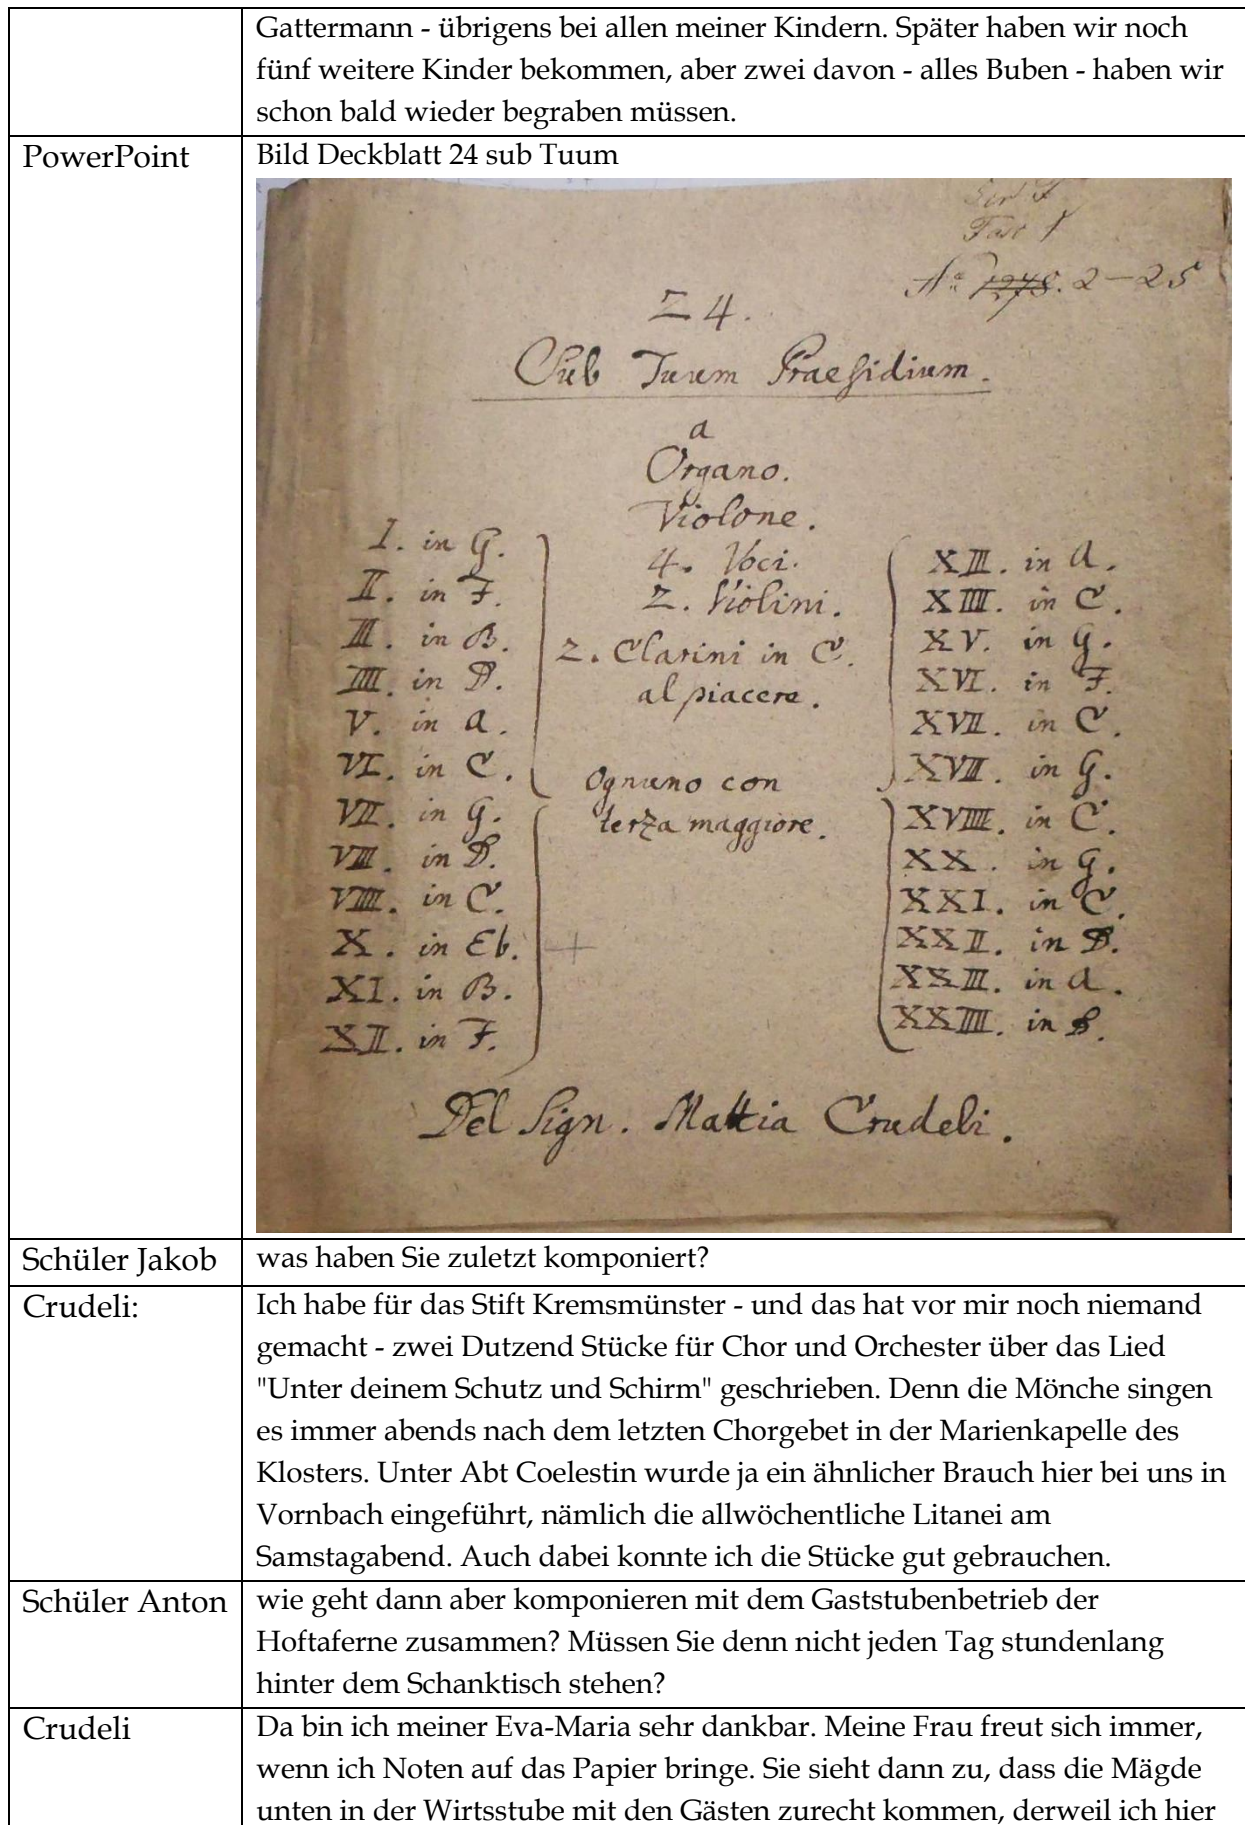 Gattermann - übrigens bei allen meiner Kindern. Später haben wir noch
fünf weitere Kinder bekommen, aber zwei davon - alles Buben - haben wir
schon bald wieder begraben müssen.
PowerPoint
Bild Deckblatt 24 sub Tuum
Fasc 1
2-25
24.
Sub Tuum Praesidium.
a
Organo.
Violone.
4. Voci.
2. Violini.
2. Clarini in C.
al piacere.
Ognuno con
terza maggiore.
I. in G.
II. in F.
III. in B.
IIII. in D.
V. in A.
VI. in C.
VII. in G.
VIII. in D.
VIIII. in C.
X. in Eb.
XI. in B.
XII. in F.
XIII. in A.
XIIII. in C.
XV. in G.
XVI. in F.
XVII. in C.
XVIII. in G.
XVIIII. in C.
XX. in G.
XXI. in C.
XXII. in D.
XXIII. in A.
XXIIII. in
Del Sign. Mattia Crudeli.
Schüler Jakob
was haben Sie zuletzt komponiert?
Crudeli:
Ich habe für das Stift Kremsmünster - und das hat vor mir noch niemand
gemacht - zwei Dutzend Stücke für Chor und Orchester über das Lied
"Unter deinem Schutz und Schirm" geschrieben. Denn die Mönche singen
es immer abends nach dem letzten Chorgebet in der Marienkapelle des
Klosters. Unter Abt Coelestin wurde ja ein ähnlicher Brauch hier bei uns in
Vornbach eingeführt, nämlich die allwöchentliche Litanei am
Samstagabend. Auch dabei konnte ich die Stücke gut gebrauchen.
Schüler Anton
wie geht dann aber komponieren mit dem Gaststubenbetrieb der
Hoftaferne zusammen? Müssen Sie denn nicht jeden Tag stundenlang
hinter dem Schanktisch stehen?
Crudeli
Da bin ich meiner Eva-Maria sehr dankbar. Meine Frau freut sich immer,
wenn ich Noten auf das Papier bringe. Sie sieht dann zu, dass die Mägde
unten in der Wirtsstube mit den Gästen zurecht kommen, derweil ich hier